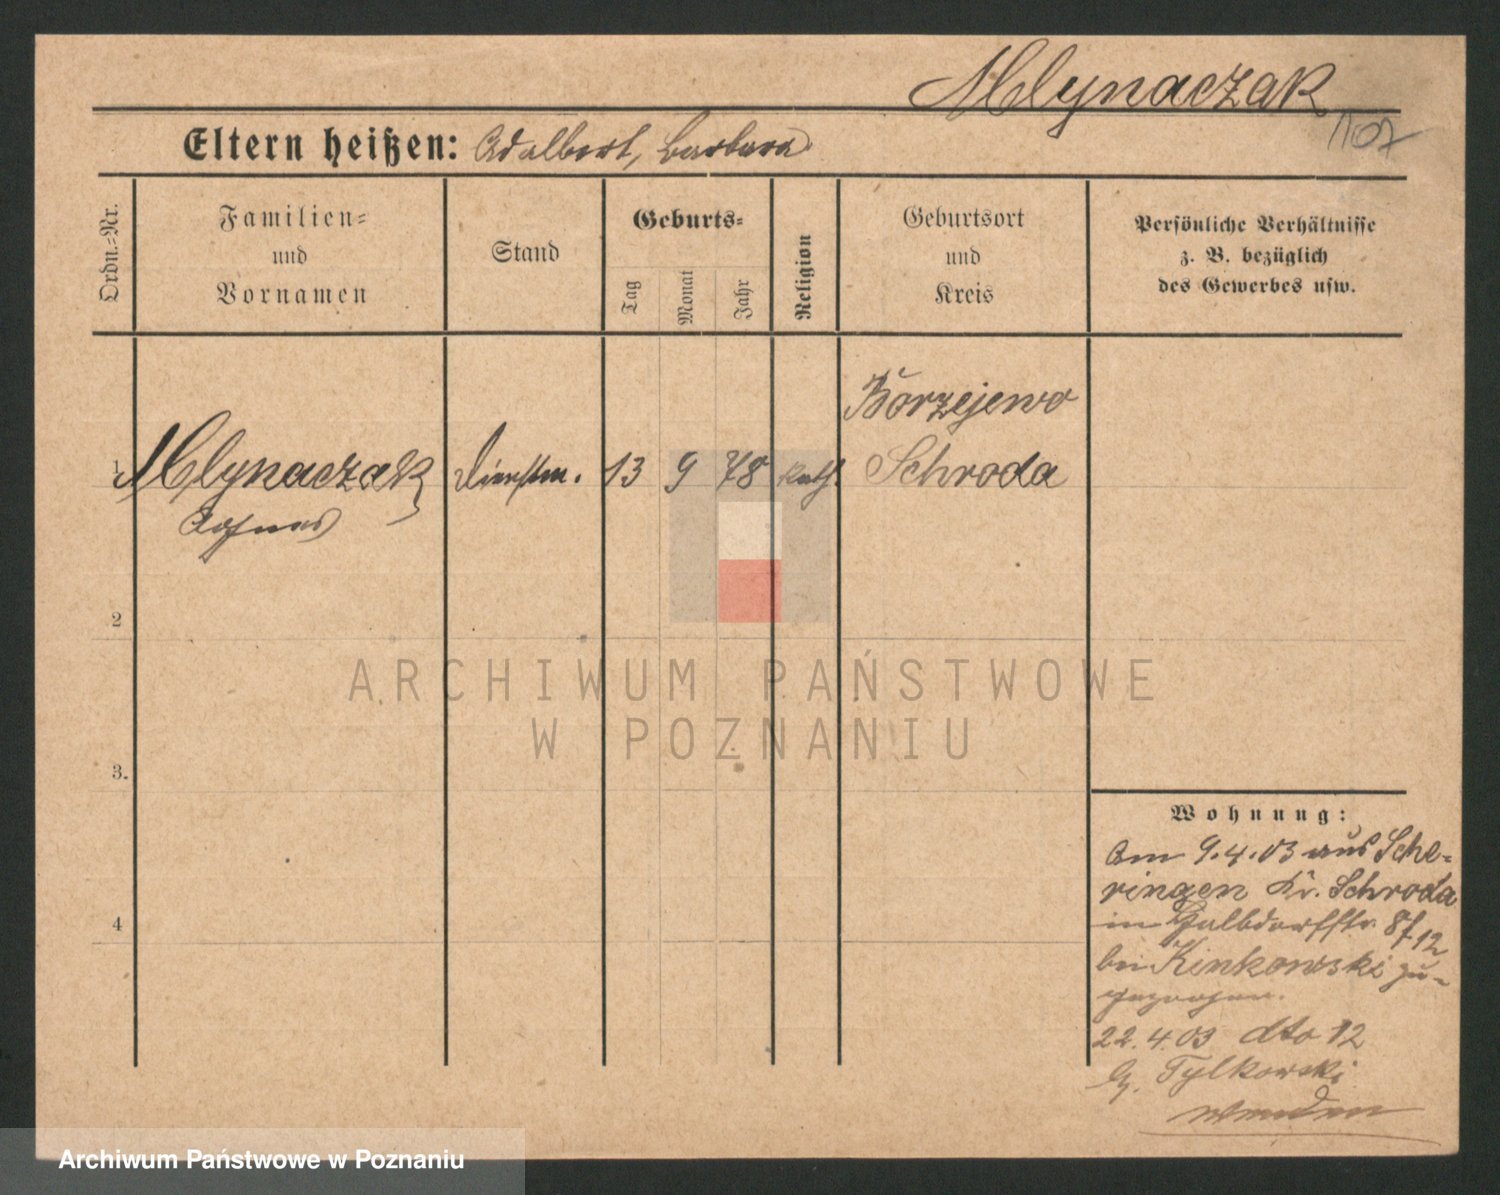 Mlynaczak
1107
Eltern heißen: Adalbert, Barbara
Ordn.-Nr.
Familien-
und
Vornamen
Stand
Geburts-
Tag
Monat
Jahr
Religion
Geburtsort
und
Kreis
Persönliche Verhältnisse
z. B. bezüglich
des Gewerbes usw.
Borzejewo
1 Mlynaczak Dienstm. 13 9 78 kath. Schroda
Agnes
2
ARCHIWUM PAŃSTWOWE
W POZNANIU
3.
4
Wohnung:
Am 9.4.03 aus Sche-
ringen Kr. Schroda
in Halbdorfstr. 8f 12
bei Kinkowski zu-
gezogen.
22.4.03 dto 12
Tylkowski
Archiwum Państwowe w Poznaniu